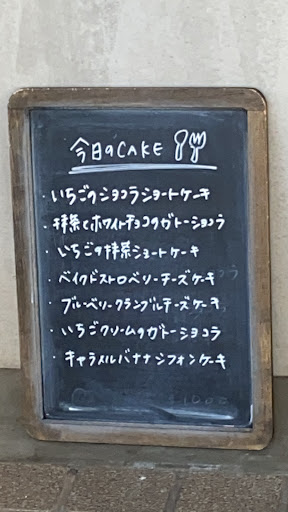 今日のCAKE
・いちごのショコラショートケーキ
・抹茶とホワイトチョコのガトーショコラ
・いちごの抹茶ショートケーキ
・ベイクドストロベリーチーズケーキ
・ブルーベリークランブルチーズケーキ
・いちごクリームのガトーショコラ
・キャラメルバナナシフォンケーキ